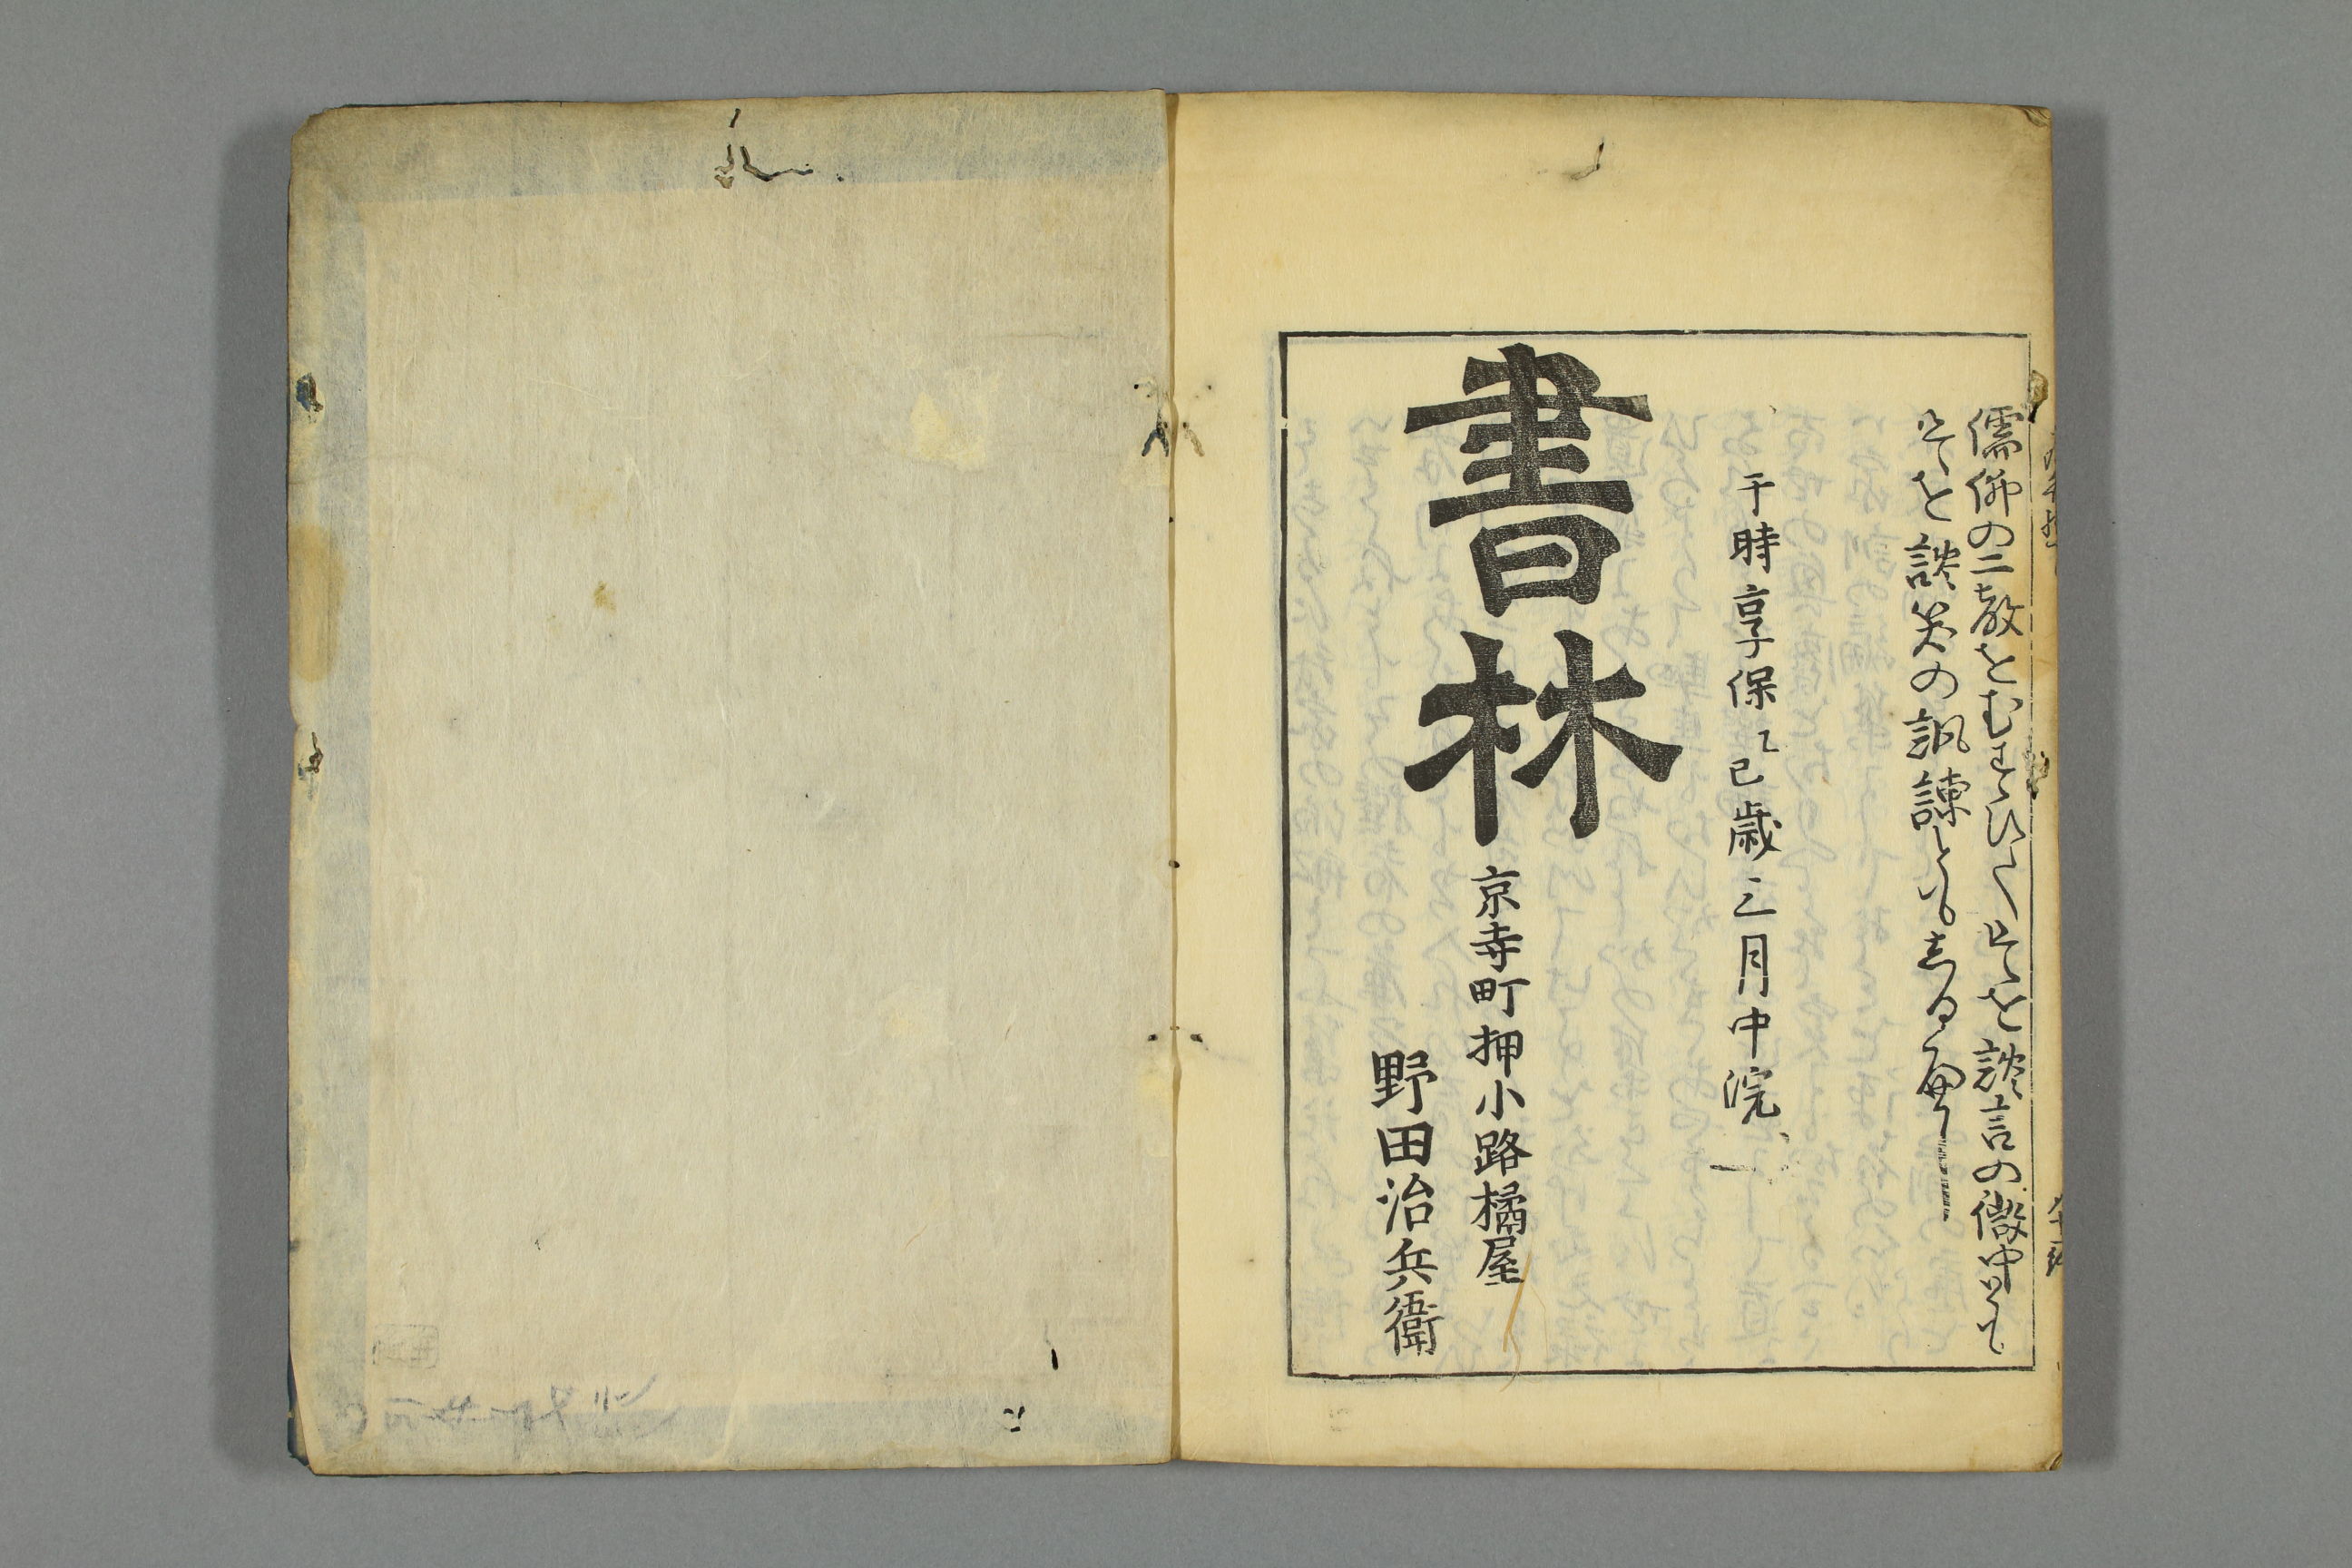 儒佛の二教をむすひて是を談言の微中にして
是を談笑の諷諫ともする歟
于時享保乙巳歳三月中浣
書林
京寺町押小路橘屋
野田治兵衛